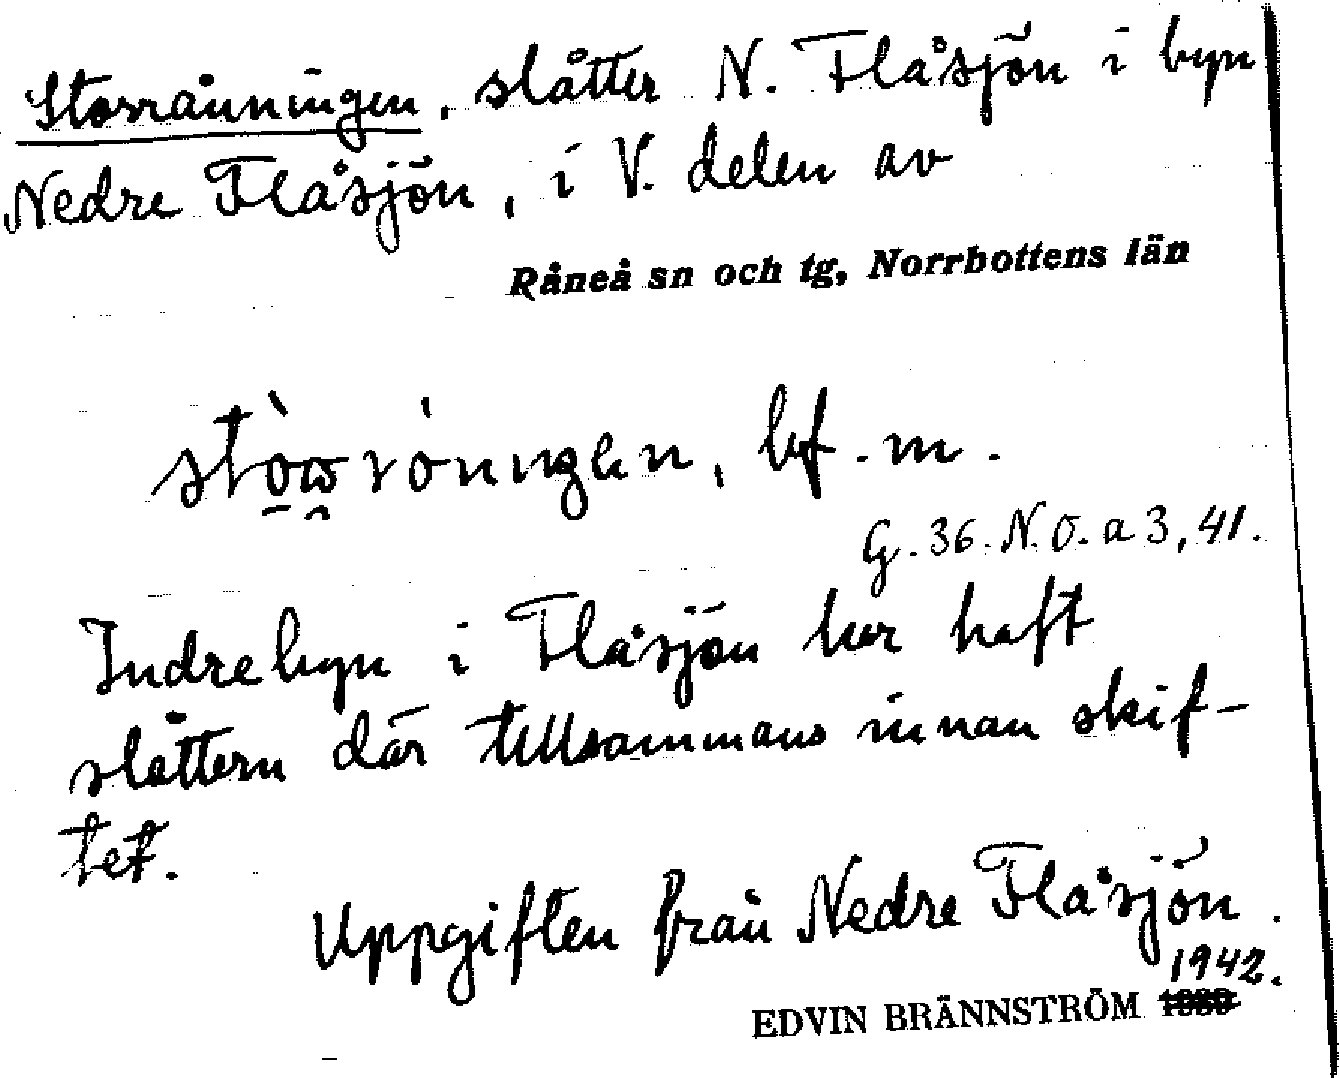 Storråningen, slåtter N. Flåsjön i byn
Nedre Flåsjön, i V. delen av
Råneå sn och tg, Norrbottens län
bf. m.
G. 36. N. Ö. a 3, 41.
Indrebyn i Flåsjön har haft
slåttern där tillsammans innan skif-
tet.
Uppgiften från Nedre Flåsjön.
1942.
EDVIN BRÄNNSTRÖM